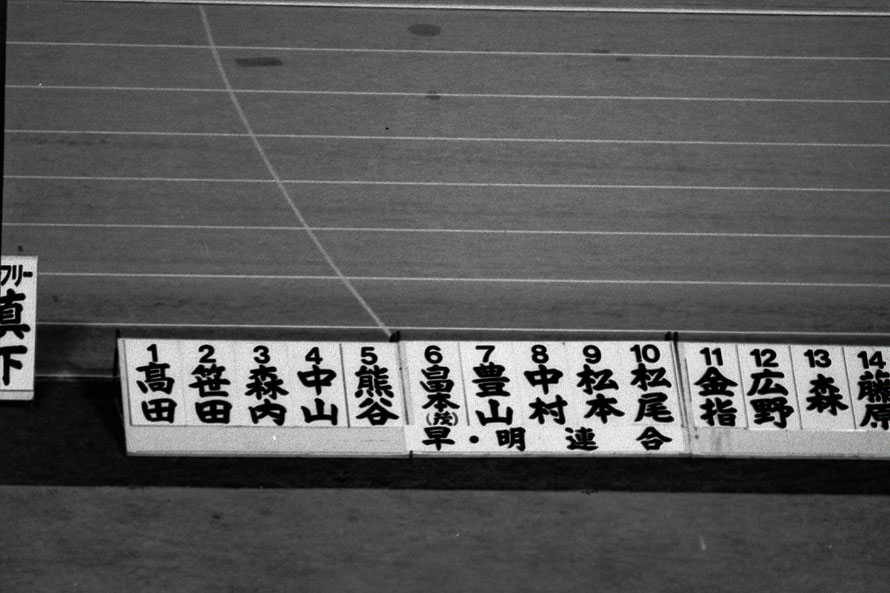 フリー
真下
1 髙田
2 笹田
3 森内
4 中山
5 熊谷
6 畠本(茂)
7 豊山
8 中村
9 松本
10 松尾
11 金指
12 広野
13 森
14 藤原
早・明連合